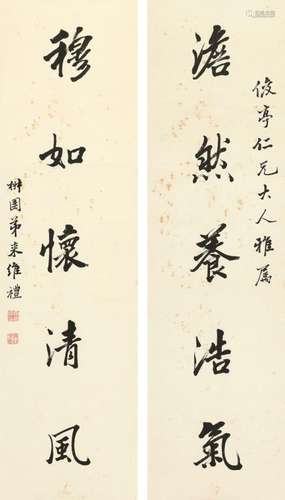 俊亭仁兄大人雅属
澹然養浩氣
穆如懷清風
樹園弟来維禮